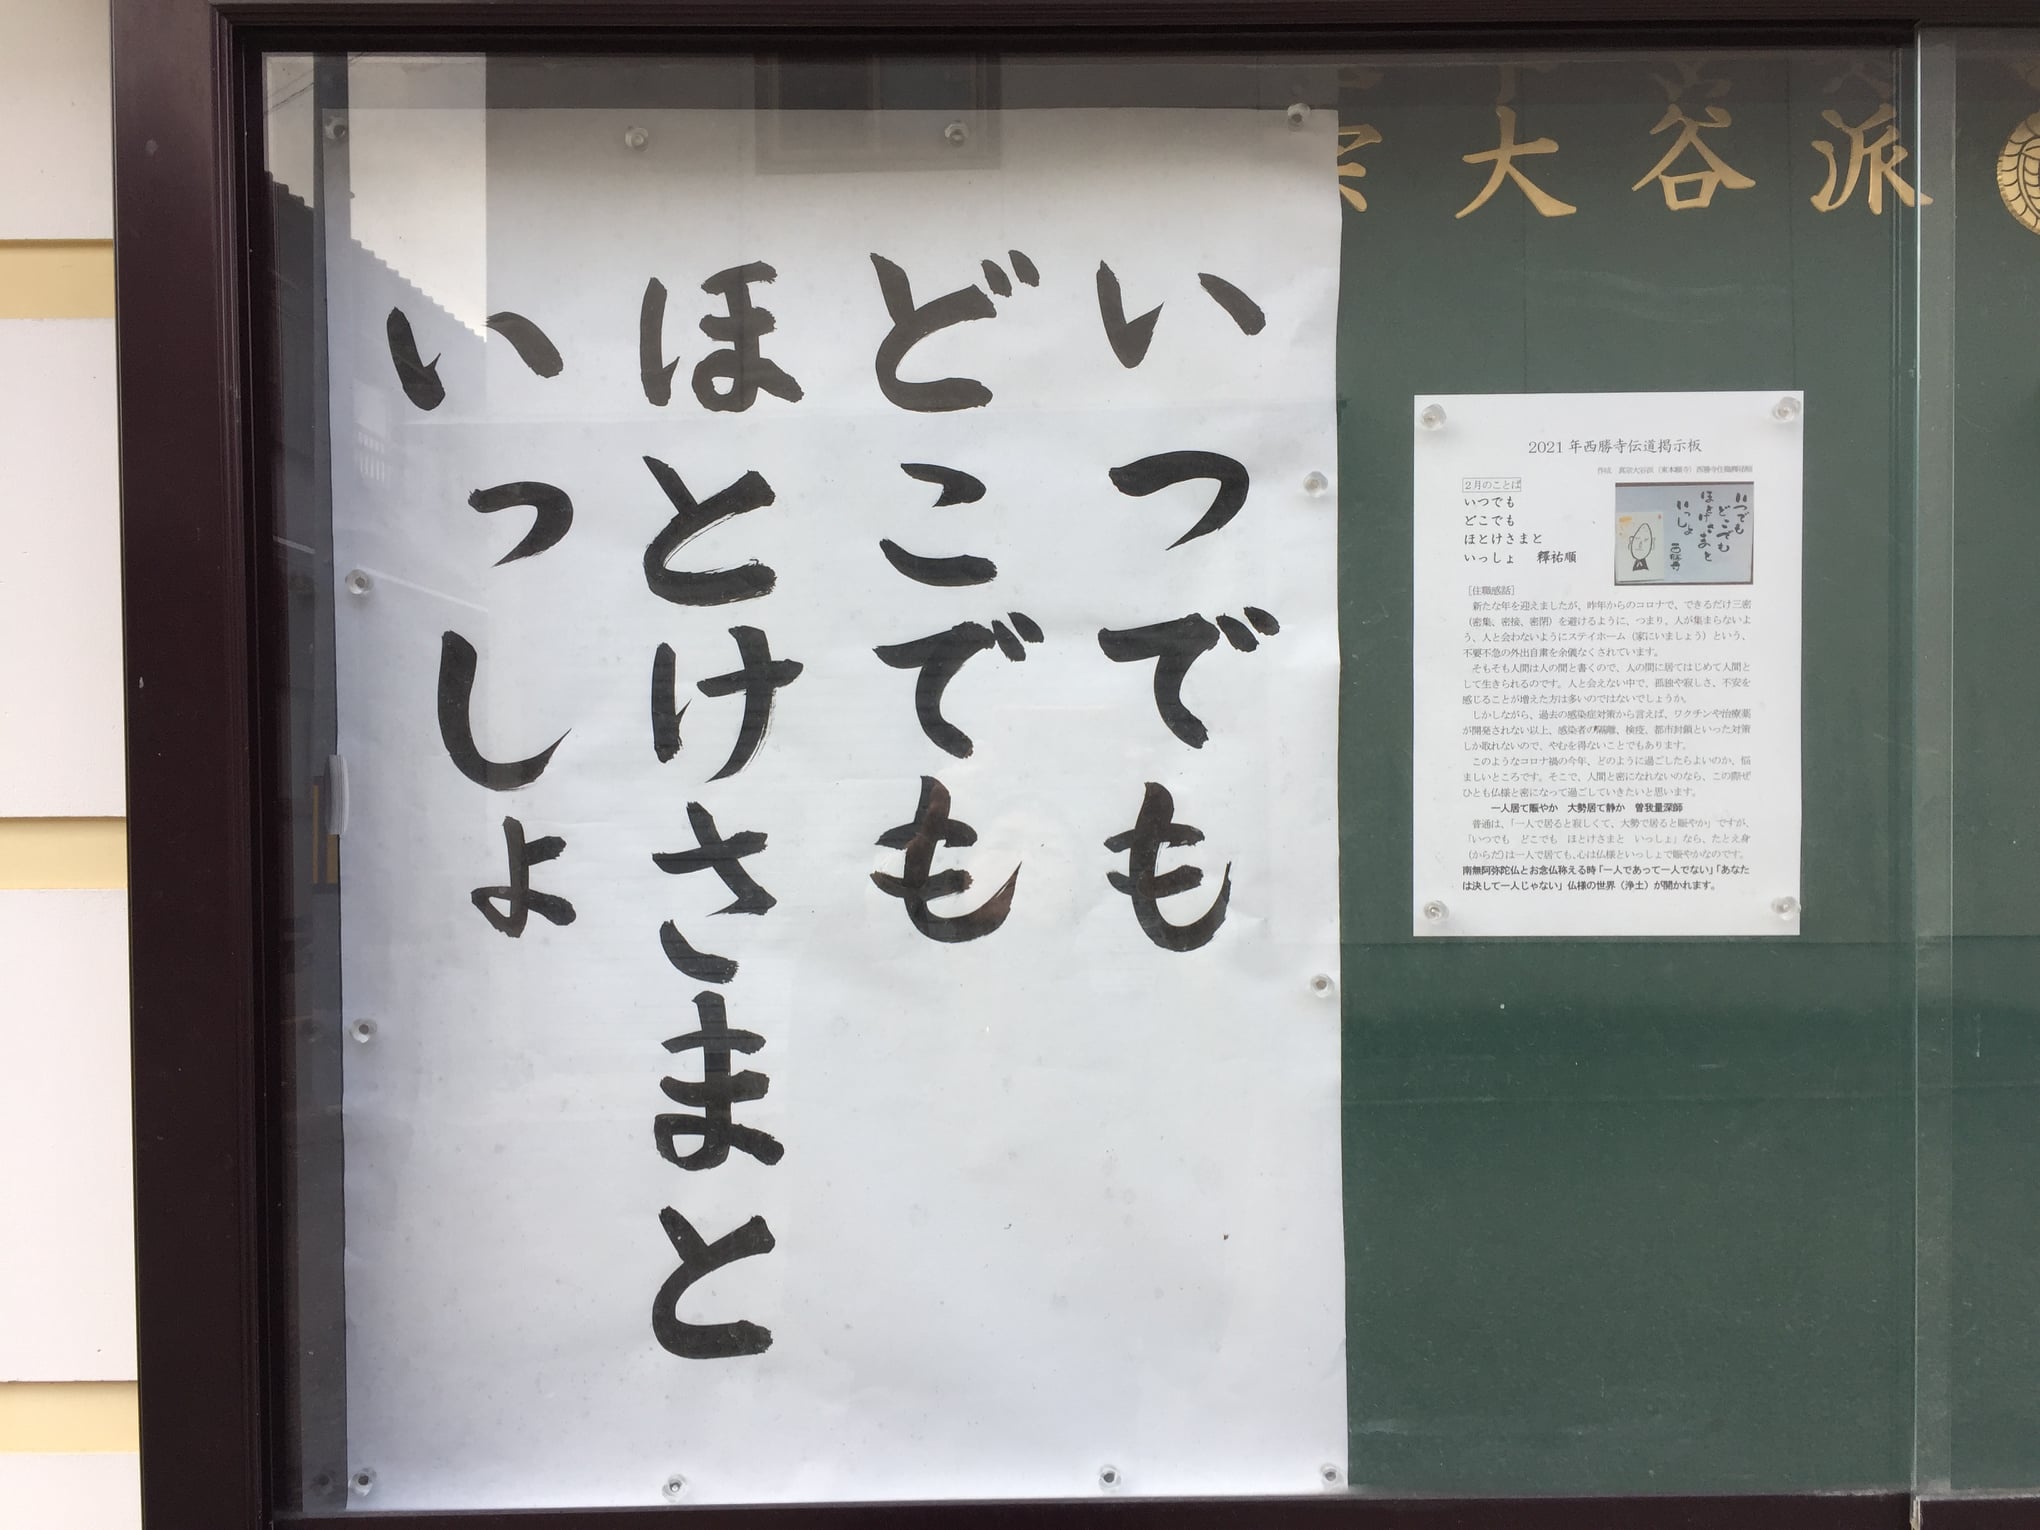 いつでも
どこでも
ほとけさまと
いっしょ
宗大谷派
2021年西勝寺伝道掲示板
作成 真宗大谷派（東本願寺）西勝寺住職釋祐順
２月のことば
いつでも
どこでも
ほとけさまと
いっしょ 釋祐順
いつでも
どこでも
ほとけさまと
いっしょ
［住職感話］
新たな年を迎えましたが、昨年からのコロナで、できるだけ三密
（密集、密接、密閉）を避けるように、つまり、人が集まらないよ
う、人と会わないようにステイホーム（家にいましょう）という、
不要不急の外出自粛を余儀なくされています。
そもそも人間は人の間と書くので、人の間に居てはじめて人間と
して生きられるのです。人と会えない中で、孤独や寂しさ、不安を
感じることが増えた方は多いのではないでしょうか。
しかしながら、過去の感染症対策から言えば、ワクチンや治療薬
が開発されない以上、感染者の隔離、検疫、都市封鎖といった対策
しか取れないので、やむを得ないことでもあります。
このようなコロナ禍の今年、どのように過ごしたらよいのか、悩
ましいところです。そこで、人間と密になれないのなら、この際ぜ
ひとも仏様と密になって過ごしていきたいと思います。
一人居て賑やか 大勢居て静か 曽我量深師
普通は、「一人で居ると寂しくて、大勢で居ると賑やか」ですが、
「いつでも どこでも ほとけさまと いっしょ」なら、たとえ身
（からだ）は一人で居ても、心は仏様といっしょで賑やかなのです。
南無阿弥陀仏とお念仏称える時「一人であって一人でない」「あなた
は決して一人じゃない」仏様の世界（浄土）が開かれます。